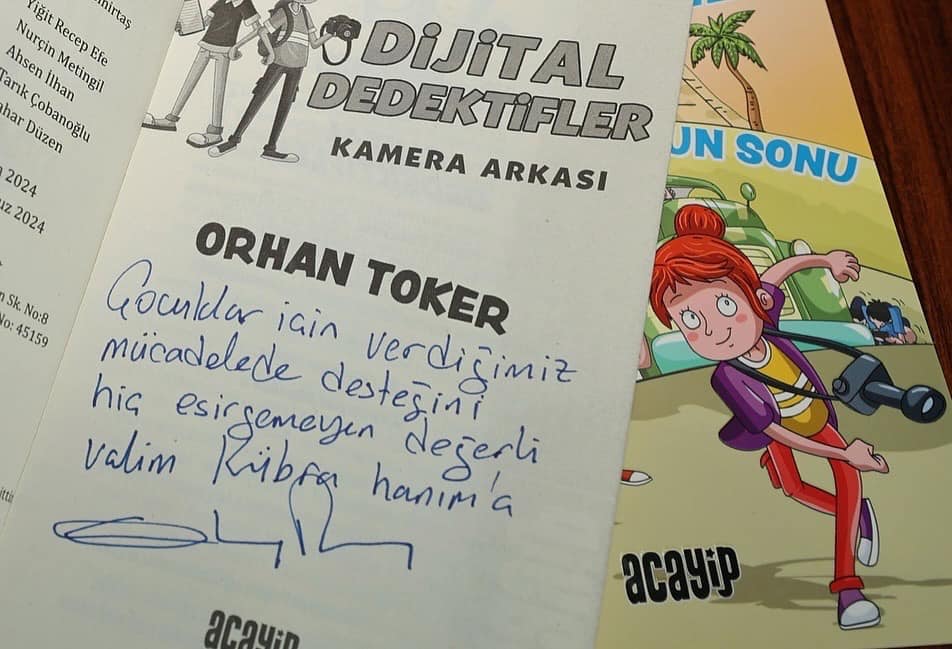 Yiğit Recep Efe
Nurçin Metingil
Ahsen İlhan
Tarık Çobanoğlu
Düzen
2024
2024
Sk. No:8
No: 45159
DİJİTAL
DEDEKTİFLER
KAMERA ARKASI
ORHAN TOKER
Çocuklar için verdiğimiz
mücadelede desteğini
hiç esirgemeyen değerli
valim Kübra hanım'a
acayip
SONU
acayip